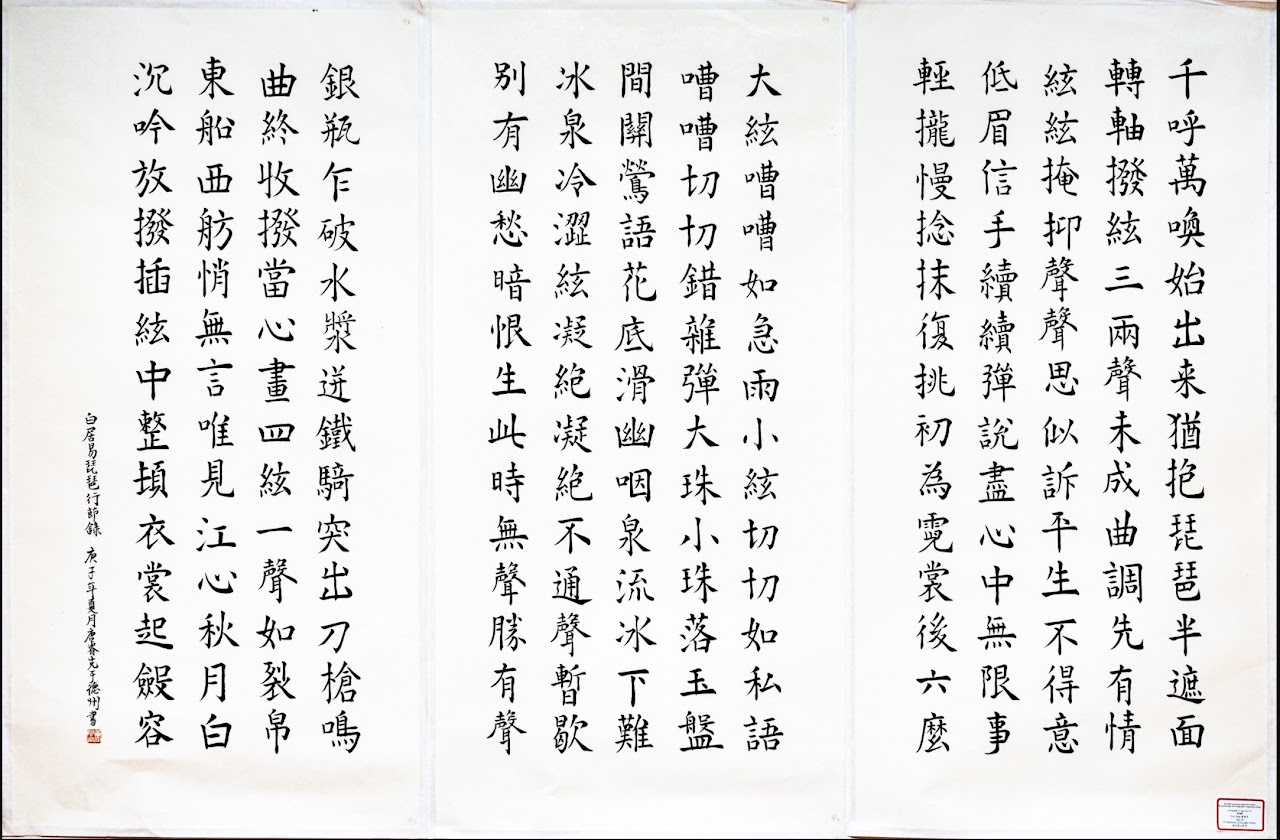 千呼萬喚始出来猶抱琵琶半遮面
轉軸撥絃三兩聲未成曲調先有情
絃絃掩抑聲聲思似訴平生不得意
低眉信手續續彈說盡心中無限事
輕攏慢捻抹復挑初為霓裳後六麼
大絃嘈嘈如急雨小絃切切如私語
嘈嘈切切錯雜彈大珠小珠落玉盤
間關鶯語花底滑幽咽泉流冰下難
冰泉冷澀絃凝絶凝絶不通聲暫歇
别有幽愁暗恨生此時無聲勝有聲
銀瓶乍破水漿迸鐵騎突出刀槍鳴
曲終收撥當心畫四絃一聲如裂帛
東船西舫悄無言唯見江心秋月白
沉吟放撥插絃中整頓衣裳起斂容
白居易琵琶行節錄 庚子年夏月唐睿克于德州書